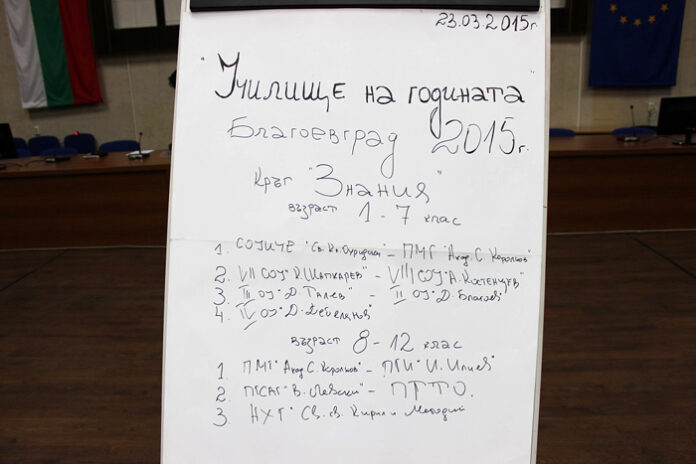 23.03.2015г
"Училище на годината"
Благоевград 2015г.
Кръг "Знания"
възраст 1-7 клас
1. СОУИЧЕ "Св. Кл. Охридски" - ПМГ "Акад. С. Корольов"
2. VII СОУ "К. Шапкарев" - VIII СОУ "А. Костенцев"
3. III ОУ "Д. Талев" - II ОУ "Д. Благоев"
4. IV ОУ "Д. Дебелянов"
възраст 8-12 клас
1. ПМГ "Акад С. Корольов" - ПГИ "И. Илиев"
2. ПГСАГ "В. Левски" - ПГТО.
3. НХГ "Св. св. Кирил и Методий